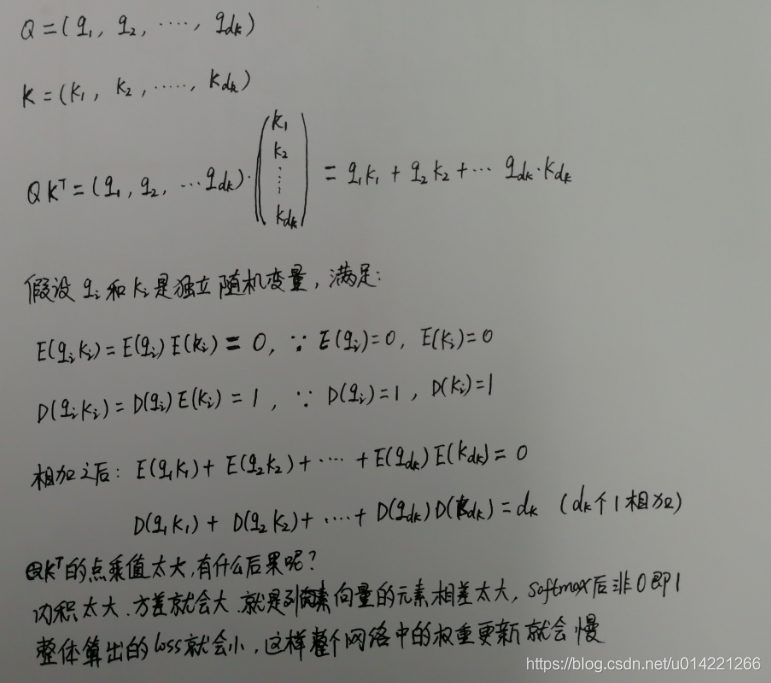 Q = (q₁, q₂, ····, q_dk)
K = (k₁, k₂, ·····, k_dk)
QKᵀ = (q₁, q₂, ··· q_dk) · (k₁ k₂ ⋮ k_dk) = q₁k₁ + q₂k₂ + ··· q_dk · k_dk
假设 qᵢ 和 kᵢ 是独立随机变量, 满足:
E(qᵢkᵢ) = E(qᵢ)E(kᵢ) = 0, ∵ E(qᵢ)=0, E(kᵢ)=0
D(qᵢkᵢ) = D(qᵢ)E(kᵢ) = 1, ∵ D(qᵢ)=1, D(kᵢ)=1
相加之后: E(q₁k₁) + E(q₂k₂) + ···· + E(q_dk)E(k_dk) = 0
D(q₁k₁) + D(q₂k₂) + ···· + D(q_dk)D(k_dk) = dk (dk个1相加)
QKᵀ的点乘值太大, 有什么后果呢?
内积太大、方差就会大、就是向量的元素相差太大, softmax后非0即1
整体算出的loss就会小, 这样整个网络中的权重更新就会慢
https://blog.csdn.net/u014221266